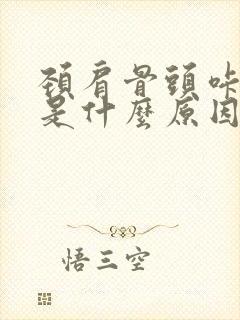 頸肩骨頭咔
是什麼原因
悟三空